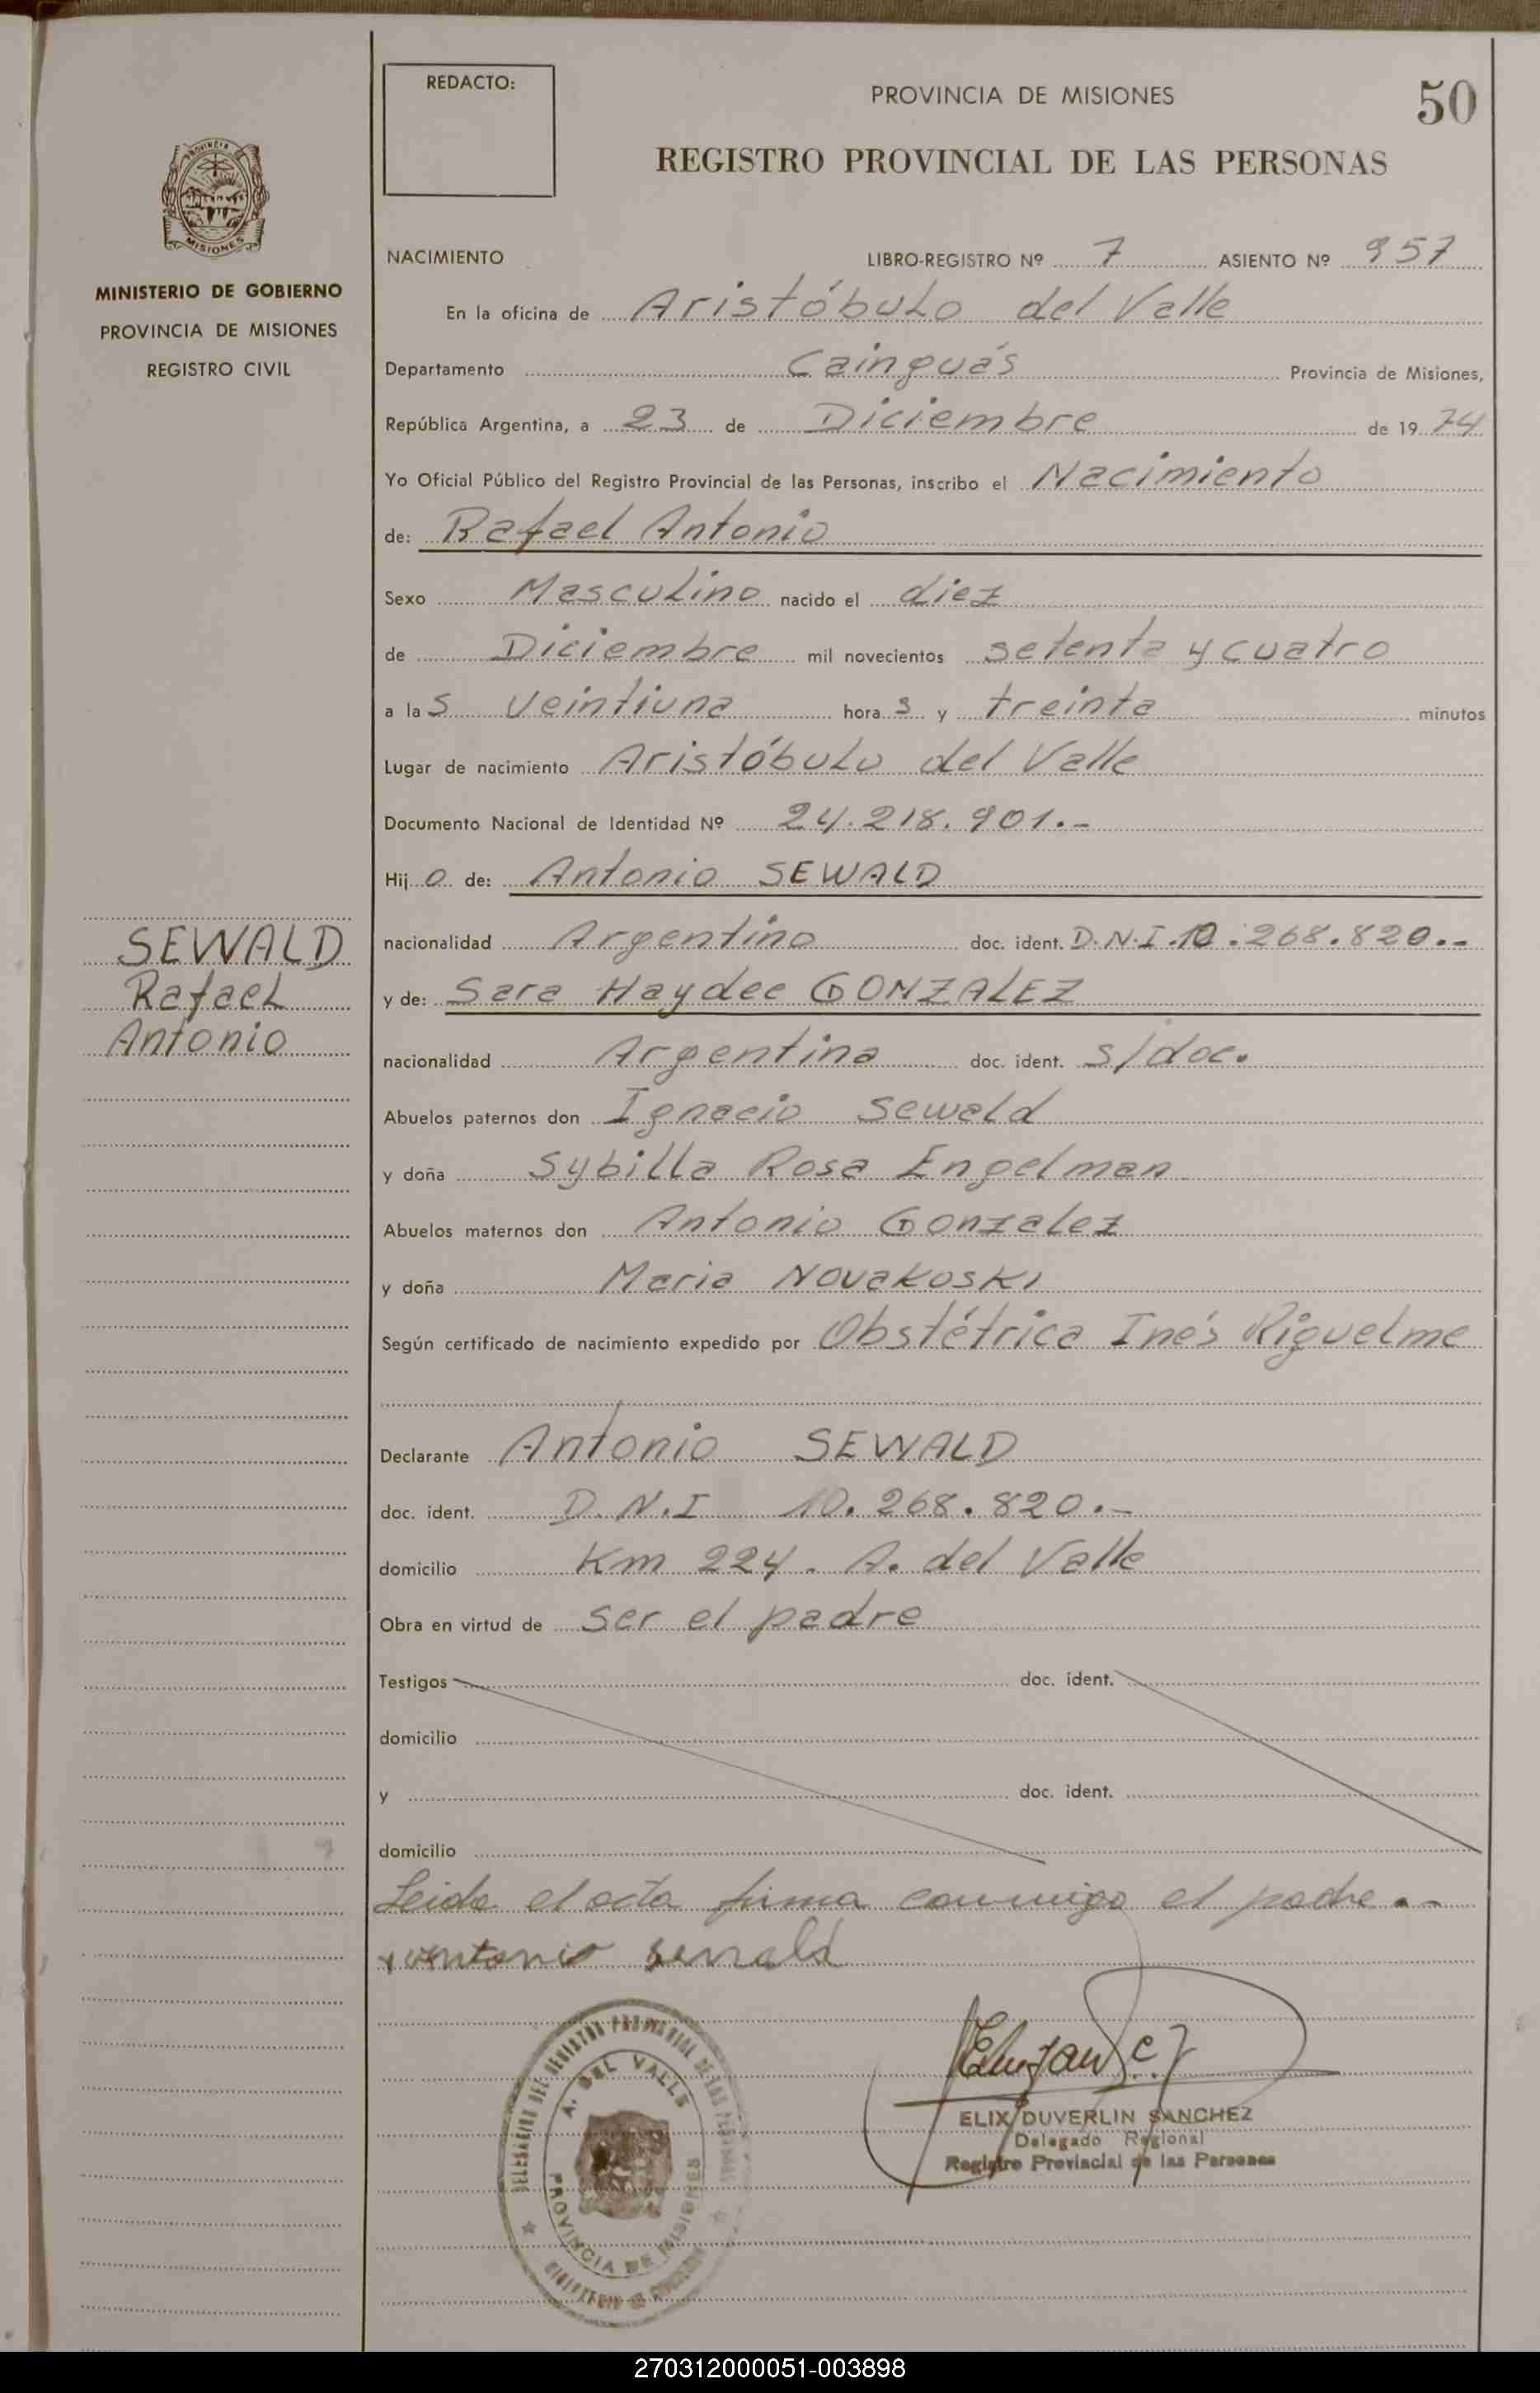 REDACTO:
PROVINCIA DE MISIONES
50
REGISTRO PROVINCIAL DE LAS PERSONAS
PROVINCIA DE
MISIONES
MINISTERIO DE GOBIERNO
PROVINCIA DE MISIONES
REGISTRO CIVIL
NACIMIENTO LIBRO-REGISTRO Nº 7 ASIENTO Nº 957
En la oficina de Aristóbulo del Valle
Departamento Cainguás Provincia de Misiones,
República Argentina, a 23 de Diciembre de 19 74
Yo Oficial Público del Registro Provincial de las Personas, inscribo el Nacimiento
de: Rafael Antonio
Sexo Masculino nacido el diez
de Diciembre mil novecientos setenta y cuatro
a la s veintiuna hora s y treinta minutos
Lugar de nacimiento Aristóbulo del Valle
Documento Nacional de Identidad Nº 24.218.901.-
Hij o de: Antonio SEWALD
nacionalidad Argentino doc. ident. D.N.I.10.268.820.-
y de: Sara Haydee GONZALEZ
nacionalidad Argentina doc. ident. s/doc.
Abuelos paternos don Ignacio Sewald
y doña Sybilla Rosa Engelman
Abuelos maternos don Antonio Gonzalez
y doña Maria Novakoski
Según certificado de nacimiento expedido por Obstétrica Inés Riguelme
Declarante Antonio SEWALD
doc. ident. D.N.I 10.268.820.-
domicilio Km 224. A. del Valle
Obra en virtud de ser el padre
Testigos doc. ident.
domicilio
y doc. ident.
domicilio
Leida el acta firma conmigo el padre.-
Antonio Sewald
SEWALD
Rafael
Antonio
DELEGACION DEL REGISTRO PROVINCIAL DE LAS PERSONAS
A. DEL VALLE
PROVINCIA DE MISIONES
MINISTERIO DE GOBIERNO
ELIX DUVERLIN SANCHEZ
Delegado Regional
Registro Provincial de las Personas
270312000051-003898